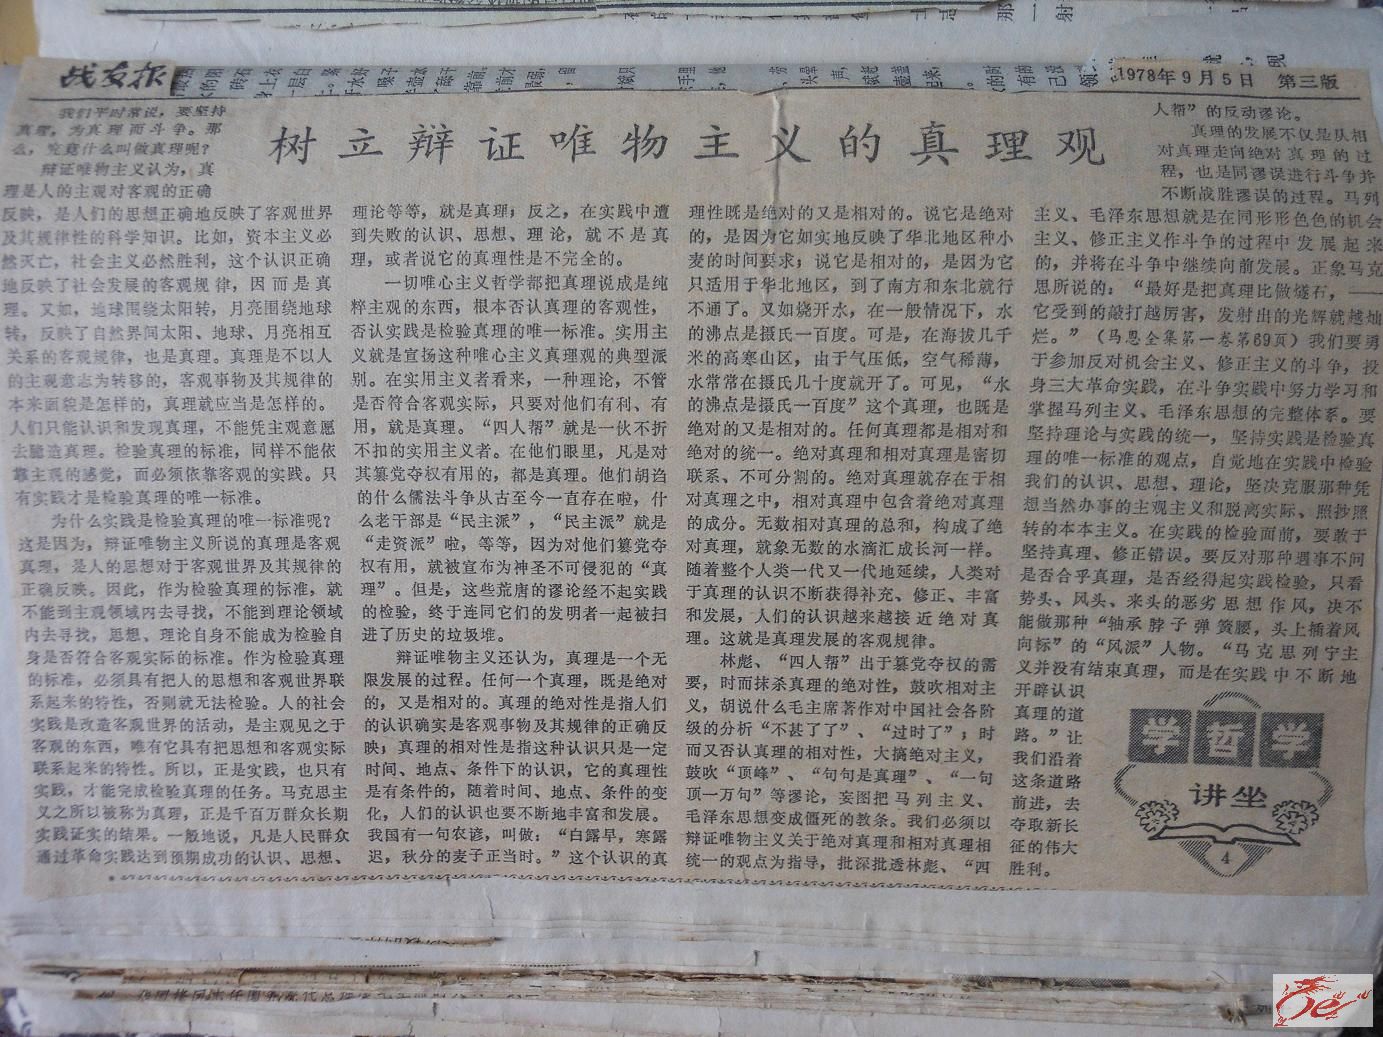 战友报
1978年9月5日 第三版
树立辩证唯物主义的真理观
我们平时常说，要坚持
真理，为真理而斗争。那
么，究竟什么叫做真理呢？
辩证唯物主义认为，真
理是人的主观对客观的正确
反映，是人们的思想正确地反映了客观世界
及其规律性的科学知识。比如，资本主义必
然灭亡，社会主义必然胜利，这个认识正确
地反映了社会发展的客观规律，因而是真
理。又如，地球围绕太阳转，月亮围绕地球
转，反映了自然界间太阳、地球、月亮相互
关系的客观规律，也是真理。真理是不以人
的主观意志为转移的，客观事物及其规律的
本来面貌是怎样的，真理就应当是怎样的。
人们只能认识和发现真理，不能凭主观意愿
去臆造真理。检验真理的标准，同样不能依
靠主观的感觉，而必须依靠客观的实践。只
有实践才是检验真理的唯一标准。
为什么实践是检验真理的唯一标准呢？
这是因为，辩证唯物主义所说的真理是客观
真理，是人的思想对于客观世界及其规律的
正确反映。因此，作为检验真理的标准，就
不能到主观领域内去寻找，不能到理论领域
内去寻找，思想、理论自身不能成为检验自
身是否符合客观实际的标准。作为检验真理
的标准，必须具有把人的思想和客观世界联
系起来的特性，否则就无法检验。人的社会
实践是改造客观世界的活动，是主观见之于
客观的东西，唯有它具有把思想和客观实际
联系起来的特性。所以，正是实践，也只有
实践，才能完成检验真理的任务。马克思主
义之所以被称为真理，正是千百万群众长期
实践证实的结果。一般地说，凡是人民群众
通过革命实践达到预期成功的认识、思想、
理论等等，就是真理；反之，在实践中遭
到失败的认识、思想、理论，就不是真
理，或者说它的真理性是不完全的。
一切唯心主义哲学都把真理说成是纯
粹主观的东西，根本否认真理的客观性，
否认实践是检验真理的唯一标准。实用主
义就是宣扬这种唯心主义真理观的典型派
别。在实用主义者看来，一种理论，不管
是否符合客观实际，只要对他们有利、有
用，就是真理。“四人帮”就是一伙不折
不扣的实用主义者。在他们眼里，凡是对
其篡党夺权有用的，都是真理。他们胡诌
的什么儒法斗争从古至今一直存在啦，什
么老干部是“民主派”，“民主派”就是
“走资派”啦，等等，因为对他们篡党夺
权有用，就被宣布为神圣不可侵犯的“真
理”。但是，这些荒唐的谬论经不起实践
的检验，终于连同它们的发明者一起被扫
进了历史的垃圾堆。
辩证唯物主义还认为，真理是一个无
限发展的过程。任何一个真理，既是绝对
的，又是相对的。真理的绝对性是指人们
的认识确实是客观事物及其规律的正确反
映；真理的相对性是指这种认识只是一定
时间、地点、条件下的认识，它的真理性
是有条件的，随着时间、地点、条件的变
化，人们的认识也要不断地丰富和发展。
我国有一句农谚，叫做：“白露早，寒露
迟，秋分的麦子正当时。”这个认识的真
理性既是绝对的又是相对的。说它是绝对
的，是因为它如实地反映了华北地区种小
麦的时间要求；说它是相对的，是因为它
只适用于华北地区，到了南方和东北就行
不通了。又如烧开水，在一般情况下，水
的沸点是摄氏一百度。可是，在海拔几千
米的高寒山区，由于气压低，空气稀薄，
水常常在摄氏几十度就开了。可见，“水
的沸点是摄氏一百度”这个真理，也既是
绝对的又是相对的。任何真理都是相对和
绝对的统一。绝对真理和相对真理是密切
联系、不可分割的。绝对真理就存在于相
对真理之中，相对真理中包含着绝对真理
的成分。无数相对真理的总和，构成了绝
对真理，就象无数的水滴汇成长河一样。
随着整个人类一代又一代地延续，人类对
于真理的认识不断获得补充、修正、丰富
和发展，人们的认识越来越接近绝对真
理。这就是真理发展的客观规律。
林彪、“四人帮”出于篡党夺权的需
要，时而抹杀真理的绝对性，鼓吹相对主
义，胡说什么毛主席著作对中国社会各阶
级的分析“不甚了了”、“过时了”；时
而又否认真理的相对性，大搞绝对主义，
鼓吹“顶峰”、“句句是真理”、“一句
顶一万句”等谬论，妄图把马列主义、
毛泽东思想变成僵死的教条。我们必须以
辩证唯物主义关于绝对真理和相对真理相
统一的观点为指导，批深批透林彪、“四
人帮”的反动谬论。
真理的发展不仅是从相
对真理走向绝对真理的过
程，也是同谬误进行斗争并
不断战胜谬误的过程。马列
主义、毛泽东思想就是在同形形色色的机会
主义、修正主义作斗争的过程中发展起来
的，并将在斗争中继续向前发展。正象马克
思所说的：“最好是把真理比做燧石，——
它受到的敲打越厉害，发射出的光辉就越灿
烂。”（马恩全集第一卷第69页）我们要勇
于参加反对机会主义、修正主义的斗争，投
身三大革命实践，在斗争实践中努力学习和
掌握马列主义、毛泽东思想的完整体系。要
坚持理论与实践的统一，坚持实践是检验真
理的唯一标准的观点，自觉地在实践中检验
我们的认识、思想、理论，坚决克服那种凭
想当然办事的主观主义和脱离实际、照抄照
转的本本主义。在实践的检验面前，要敢于
坚持真理、修正错误。要反对那种遇事不问
是否合乎真理，是否经得起实践检验，只看
势头、风头、来头的恶劣思想作风，决不
能做那种“轴承脖子弹簧腰，头上插着风
向标”的“风派”人物。“马克思列宁主
义并没有结束真理，而是在实践中不断地
开辟认识
真理的道
路。”让
我们沿着
这条道路
前进，去
夺取新长
征的伟大
胜利。
学哲学
讲坐
4